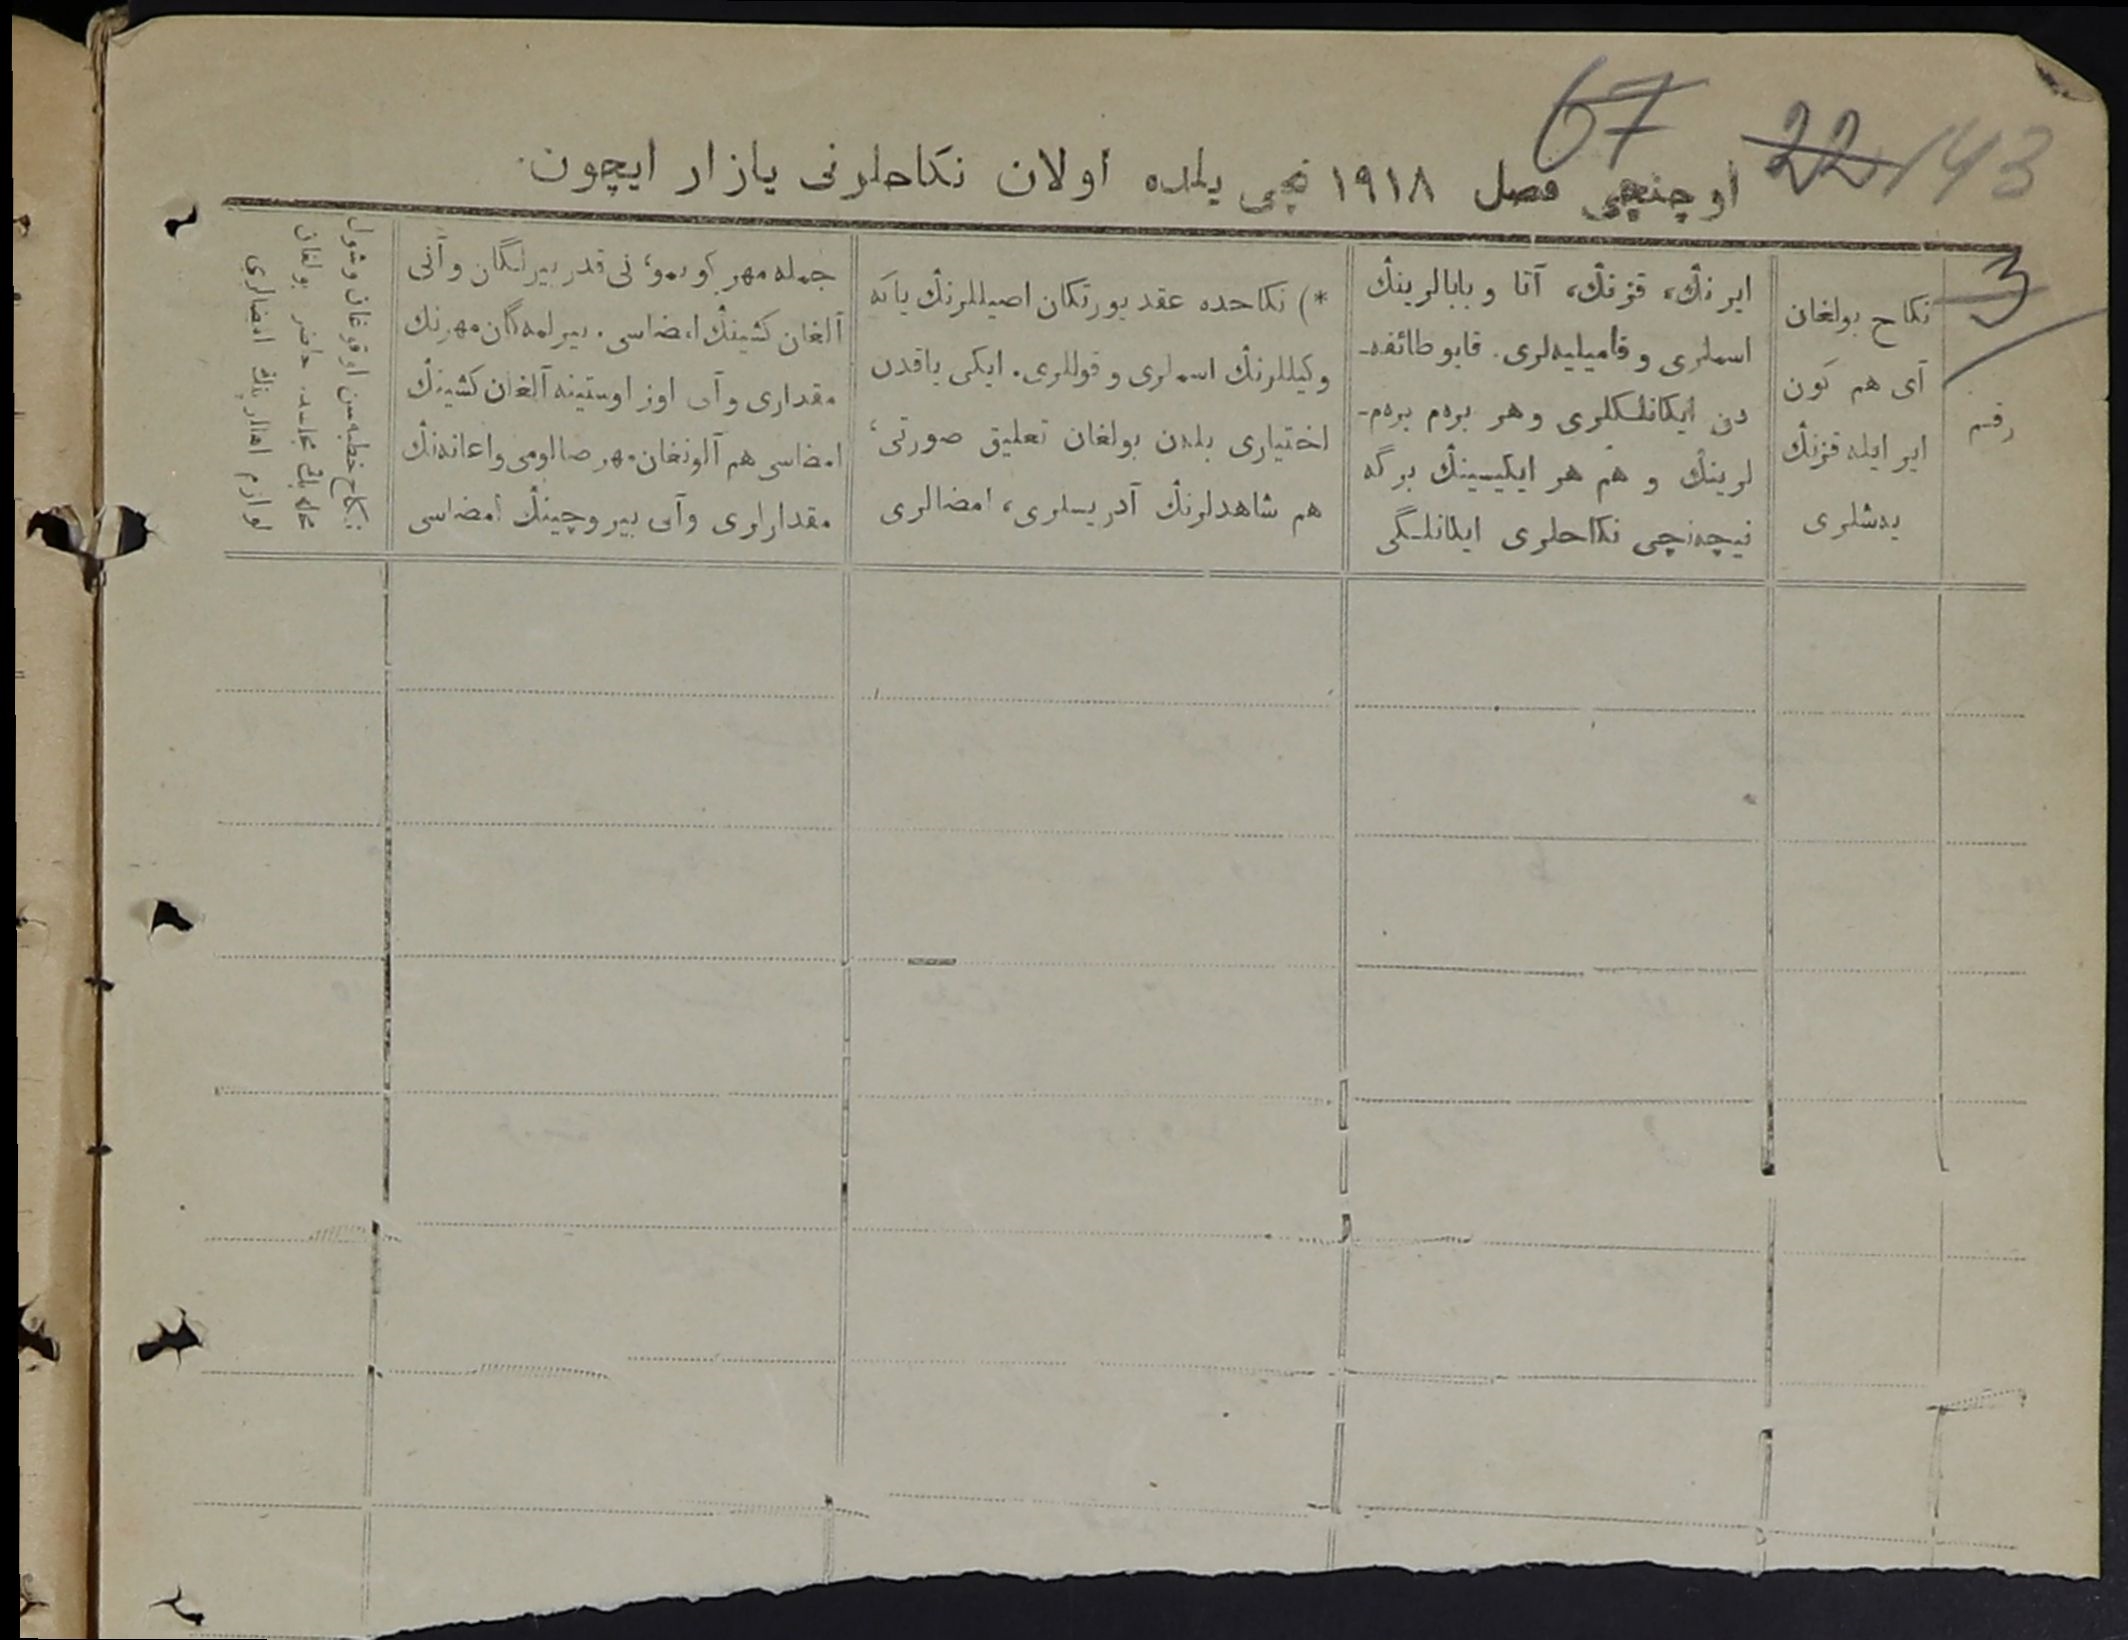 67 22 143
اوچنچی فصل ١٩١٨ نچی یلده اولان نکاحلرنی یازار ایچون.
3
رقم
نکاح بولغان
آی هم کون
ایر ایله قزنڭ
یه‌شلری
ایرنڭ، قزنڭ، آتا و بابالرینڭ
اسملری و فامیلیه‌لری. قایو طائفه‌ـ
دن ایکانلکلری و هر برم برم‌ـ
لرینڭ و هم هر ایکیسینڭ برگه
نیچه‌نچی نکاحلری ایکانلـگی
*) نکاحده عقد یورتکان اصیللرنڭ یا‌که
وکیللرنڭ اسملری و قوللری. ایکی یاقدن
اختیاری بلدن بولغان تعلیق صورتی،
هم شاهدلرنڭ آدریسلری، امضالری
جمله مهر کو‌بمو، نی قدر بیرلگان و آنی
آلغان کشینڭ امضاسی. بیرلمه‌گان مهرنڭ
مقداری و آنی اوز اوستینه آلغان کشینڭ
امضاسی هم آلونغان مهر صالومی و اعانه‌نڭ
مقدارلری و آنی بیروچینڭ امضاسی
نکاح خطبه‌سن اوقوغان و شول
حاضر بولغان
لوازم امضالری